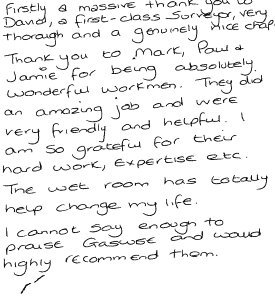 Firstly a massive thank you to
David, a first-class Surveyor, very
thorough and a genuinely nice chap.
Thank you to Mark, Paul &
Jamie for being absolutely
wonderful workmen. They did
an amazing job and were
very friendly and helpful. I
am so grateful for their
hard work, expertise etc.
The wet room has totally
help change my life.
I cannot say enough to
praise Gaswise and would
highly recommend them.